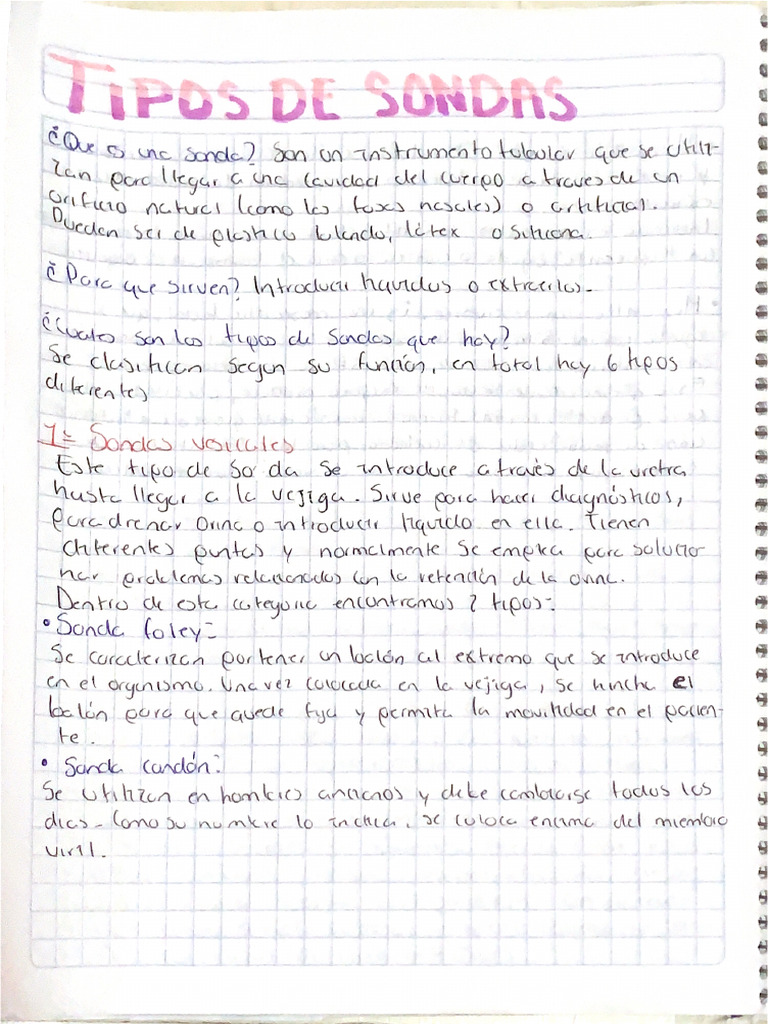 TIPOS DE SONDAS
¿Que es una sonda? Son un instrumento tubular que se utili-
zan para llegar a una cavidad del cuerpo a traves de un
orificio natural (como las fosas nasales) o artificial.
Pueden ser de plastico blando, látex o silicona.
¿Para que sirven? Introducir liquidos o extraerlos.
¿Cuales son los tipos de sondas que hay?
Se clasifican segun su función, en total hay 6 tipos
diferentes
1= Sondas vesicales
Este tipo de so da se introduce a través de la uretra
hasta llegar a la vejiga. Sirve para hacer diagnósticos,
para drenar orina o introducir liquido en ella. Tienen
diferentes puntas y normalmente se emplea para solucio-
nar problemas relacionados con la retención de la orina.
Dentro de esta categoria encontramos 2 tipos:
• Sonda foley:
Se caracterizan por tener un balón al extremo que se introduce
en el organismo. Una vez colocada en la vejiga, se hincha el
balón para que quede fija y permita la movilidad en el pacien-
te.
• Sonda condón:
Se utilizan en hombres ancianos y debe cambiarse todos los
dias. Como su nombre lo indica, se coloca encima del miembro
viril.